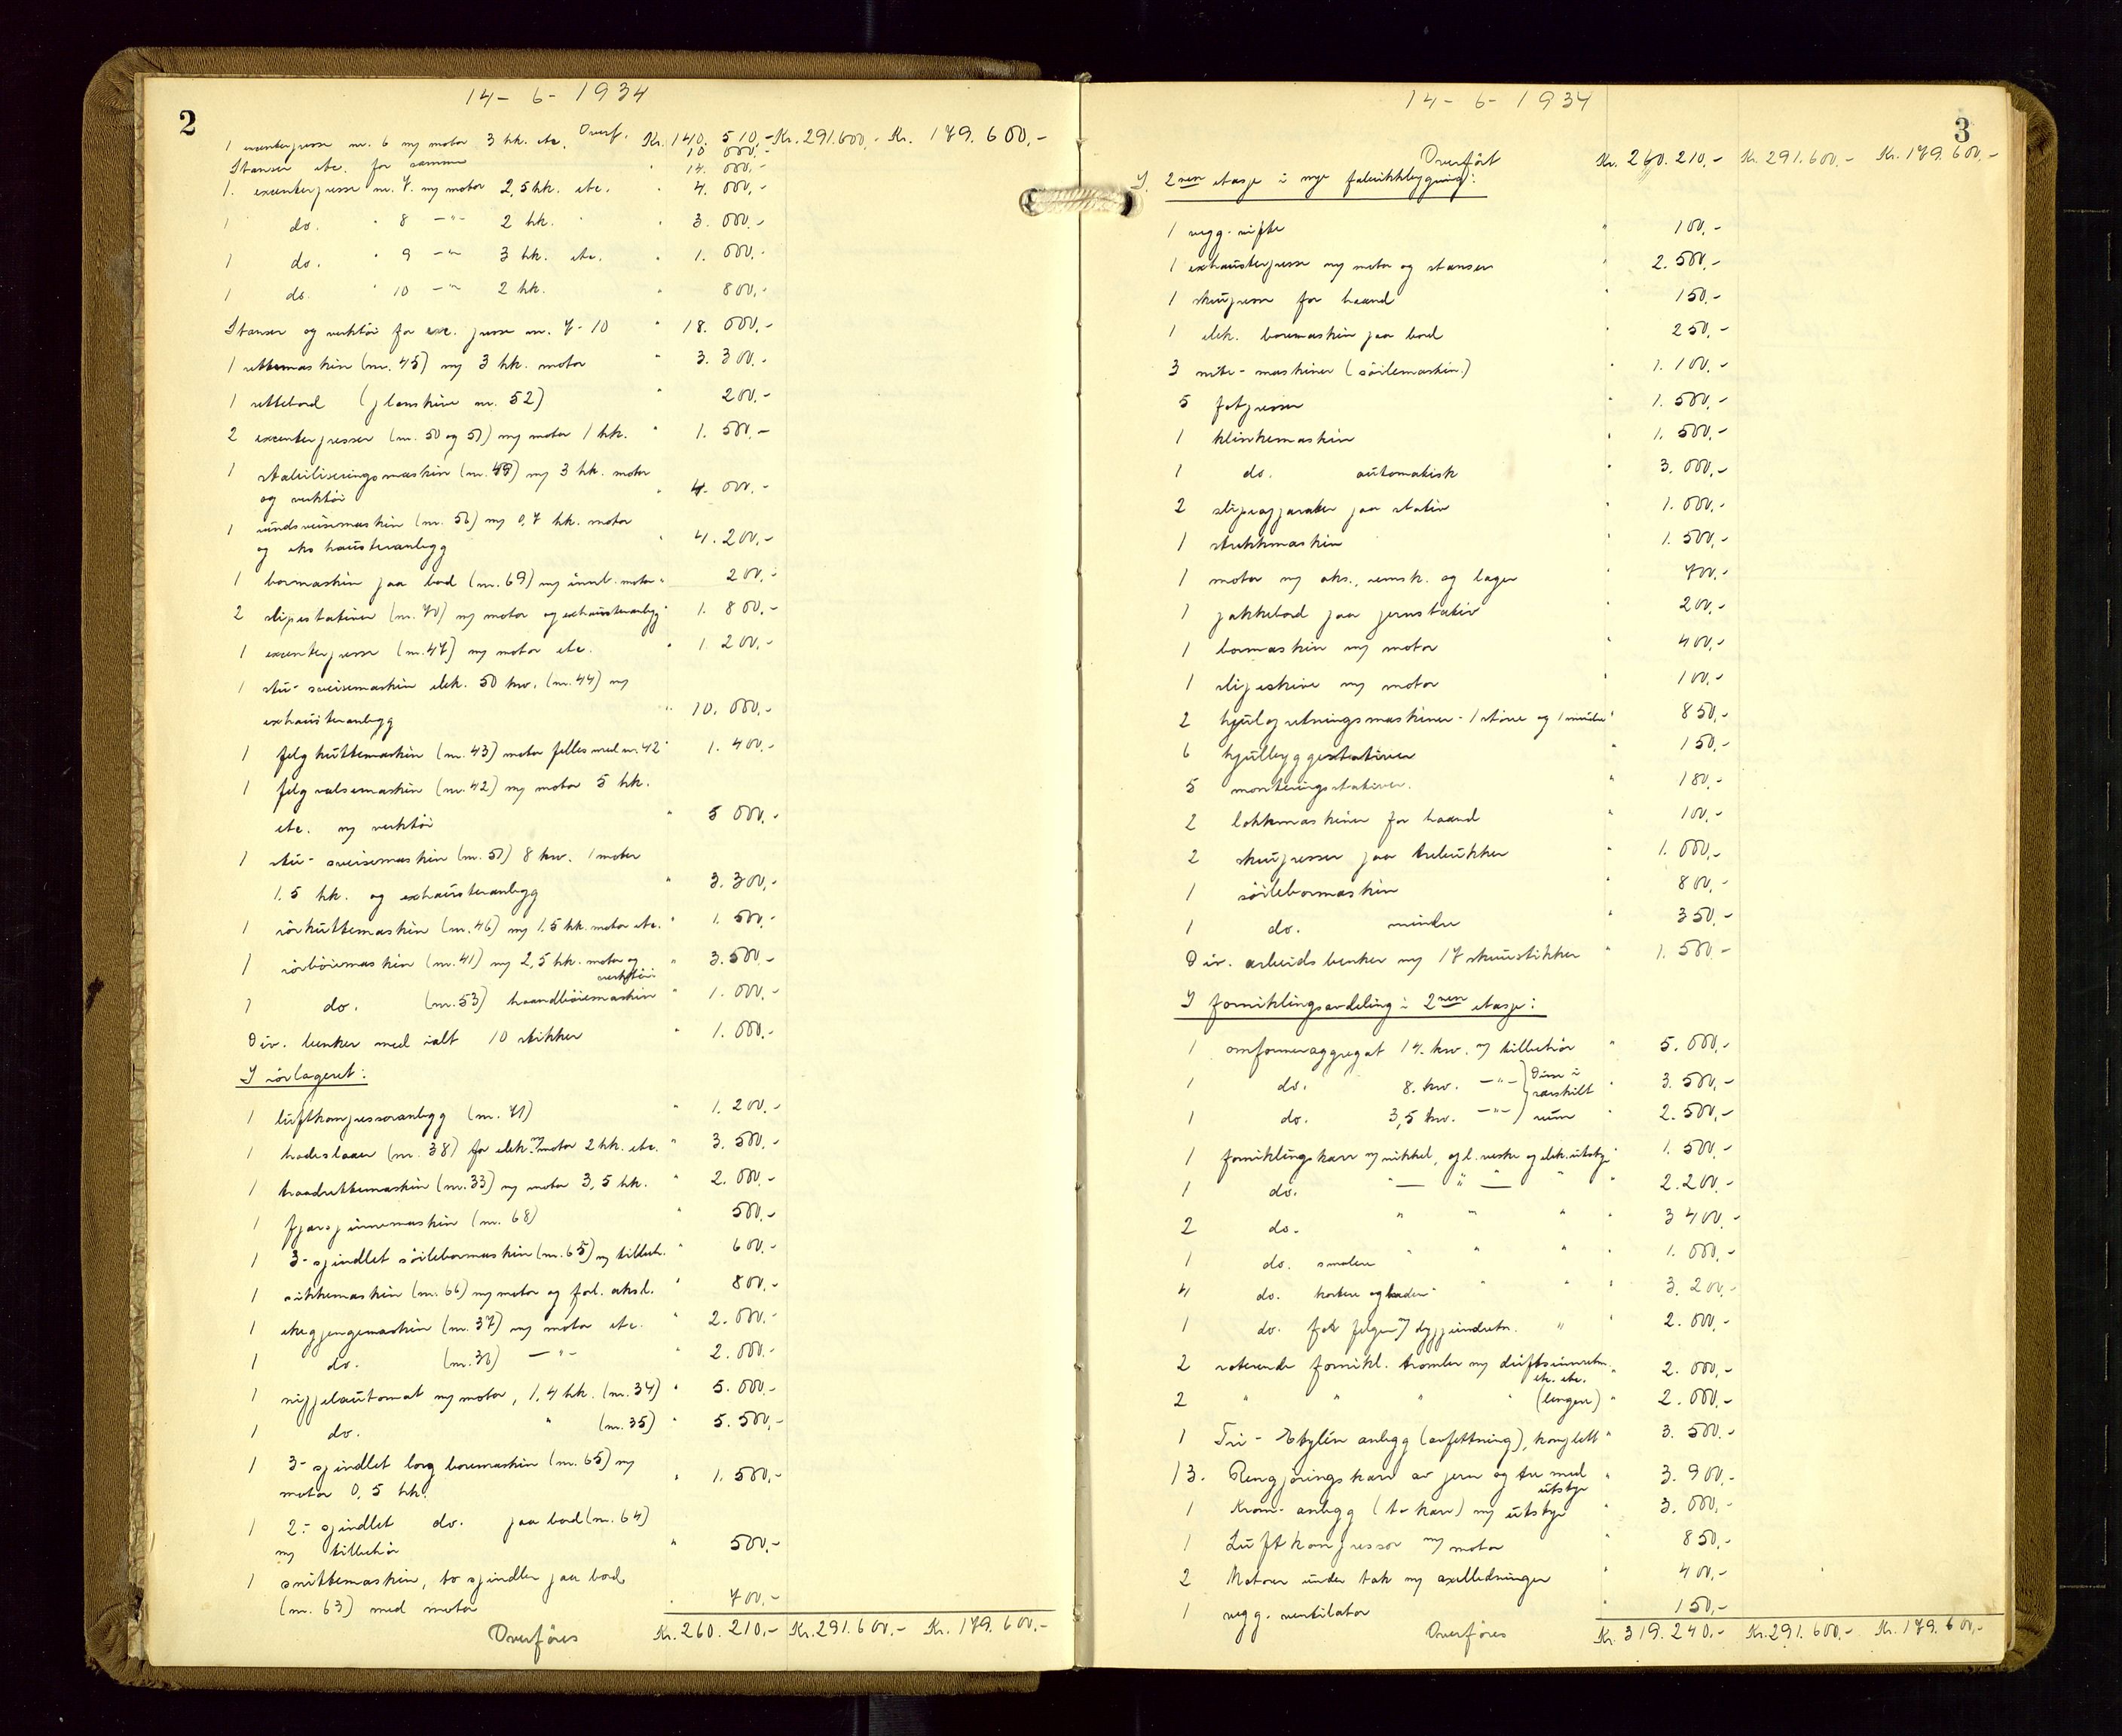 2
14 - 6 - 1934
Overf. Kr. 140.510,- Kr. 291.600,- Kr. 179.600,-
1 excenterpresse nr. 6 m/ motor 3 hk. etc. 10 000,-
Stanser etc. for samme 14. 000,-
1. excenterpresse nr. 7. m/ motor 2,5 hk. etc. " 4. 000,-
1 do. " 8 -"- 2 hk. " " 3. 000,-
1 do. " 9 -"- 3 hk. etc. " 1. 000,-
1 do. " 10 -"- 2 hk. " 800,-
Stanser og verktöi for exc. presse nr. 7-10 " 18. 000,-
1 rettemaskin (nr. 45) m/ 3 hk. motor " 3. 300,-
1 rettebord (planskive nr. 52) " 200,-
2 excenterpresser (nr. 50 og 51) m/ motor 1 hk. " 1. 500,-
1 stabiliseringsmaskin (nr. 49) m/ 3 hk. motor
og verktöi " 4. 000,-
1 rundsveisemaskin (nr. 56) m/ 0,7 hk. motor
og ekshausteranlegg " 4. 200,-
1 bormaskin paa bord (nr. 69) m/ innb. motor " 200,-
2 slipestativer (nr. 70) m/ motor og exhausteranlegg " 1. 800,-
1 excenterpresse (nr. 47) m/ motor etc. " 1 200,-
1 stu-sveisemaskin elek. 50 kw. (nr. 44) m/
exhausteranlegg " 10. 000,-
1 felgkuttemaskin (nr. 43) motor felles med nr. 42 " 1. 400,-
1 felgvalsemaskin (nr. 42) m/ motor 5 hk.
etc. m/ verktöi " 5 000,-
1 stu-sveisemaskin (nr. 57) 8 kw. 1 motor
1.5 hk. og exhausteranlegg " 3. 300,-
1 rörkuttemaskin (nr. 46) m/ 1.5 hk. motor etc. " 1. 500,-
1 rörböiemaskin (nr. 41) m/ 2,5 hk. motor og verktöi " 3. 500,-
1 do. (nr. 53) haandböiemaskin " 1. 000,-
Div. benker med ialt 10 stikker " 1. 000,-
I rörlageret:
1 luftkompressoranlegg (nr. 71) " 1. 200,-
1 hodeslaaer (nr. 38) for elek. m/ motor 2 hk. etc. " 3. 500,-
1 traadrettemaskin (nr. 33) m/ motor 3,5 hk. " 2. 000,-
1 fjærspinnemaskin (nr. 68) " 500,-
1 3-spindlet söilebormaskin (nr. 65) m/ tilbeh. " 600,-
1 sikkemaskin (nr. 66) m/ motor og forl. aksl. " 800,-
1 ekegjengemaskin (nr. 37) m/ motor etc. " 2. 000,-
1 do. (nr. 36) -"- " 2. 000,-
1 nippelautomat m/ motor, 1,4 hk. (nr. 34) " 5. 000,-
1 do. " (nr. 35) " 5. 500,-
1 3-spindlet boremaskin (nr. 65) m/
motor 0,5 hk. " 1. 500,-
1 2-spindlet do. paa bord (nr. 64)
m/ tilbehör " 500,-
1 snittemaskin, to spindler paa bord
(nr. 63) med motor " 700,-
Overföres Kr. 260. 210,- Kr. 291.600,- Kr. 179. 600,-
3
14 - 6 - 1934
Overfört Kr. 260. 210,- Kr. 291.600,- Kr. 179.600,-
I 2nen etasje i nye fabrikkbygning:
1 vegg-vifte " 100,-
1 exhausterpresse m/ motor og stanser " 2. 500,-
1 skrupresse for haand " 150,-
1 elek. boremaskin paa bord " 250,-
3 nitte-maskiner (söilemaskin.) " 1. 100,-
5 fotpresser " 1. 500,-
1 klinkemaskin " 1. 500,-
1 do. automatisk " 3. 000,-
2 slipeapparater paa stativ " 1. 000,-
1 stukkmaskin " 1. 500,-
1 motor m/ aks., remsk. og lager " 700,-
1 pakkebord paa jernstativ " 200,-
1 bormaskin m/ motor " 400,-
1 slipeskive m/ motor " 100,-
2 hjulopretningsmaskiner - 1 större og 1 mindre " 850,-
6 hjulbyggestativer " 150,-
5 monteringsstativer. " 180,-
2 lokkmaskiner for haand " 100,-
2 skrupresser paa trebukker " 1. 000,-
1 söilebormaskin " 800,-
1 do. mindre " 350,-
Div. arbeidsbenker m/ 17 skrustikker " 1. 500,-
I fornklingsavdeling i 2nen etasje:
1 omformeraggregat 14. kw. m/ tilbehör " 5. 000,-
1 do. 8. kw. -"- } Disse i " 3. 500,-
særskilt
1 do. 3,5 kw. -"- } rum " 2. 500,-
1 forniklingskarr m/ nikkel, opl. veske og elek. utstyr " 1. 500,-
1 do. "— " — " " 2.200,-
2 do. " " " " 3 400,-
1 do. smalere " " " " 1. 000,-
4 do. kortere og breder " " " " 3. 200,-
1 do. for felger m/ dyppeindretn. " " 2. 000,-
2 roterende fornikl. tromler m/ driftsinnretn. etc. etc. " 2. 000,-
2 " " " " (lengere) " 2. 000,-
1 Tri-Etylén anlegg (avfettning), komplett " 3. 500,-
13. Rengjöringskarr av jern og tre med utstyr " 3. 900,-
1 Krom-anlegg (to karr) m/ utstyr " 3. 000,-
1 Luftkompressor m/ motor " 850,-
2 Motorer under tak m/ axelledninger " 400,-
1 vegg-ventilator " 150,-
Overföres Kr. 319. 240,- Kr. 291. 600,- Kr. 179. 600,-